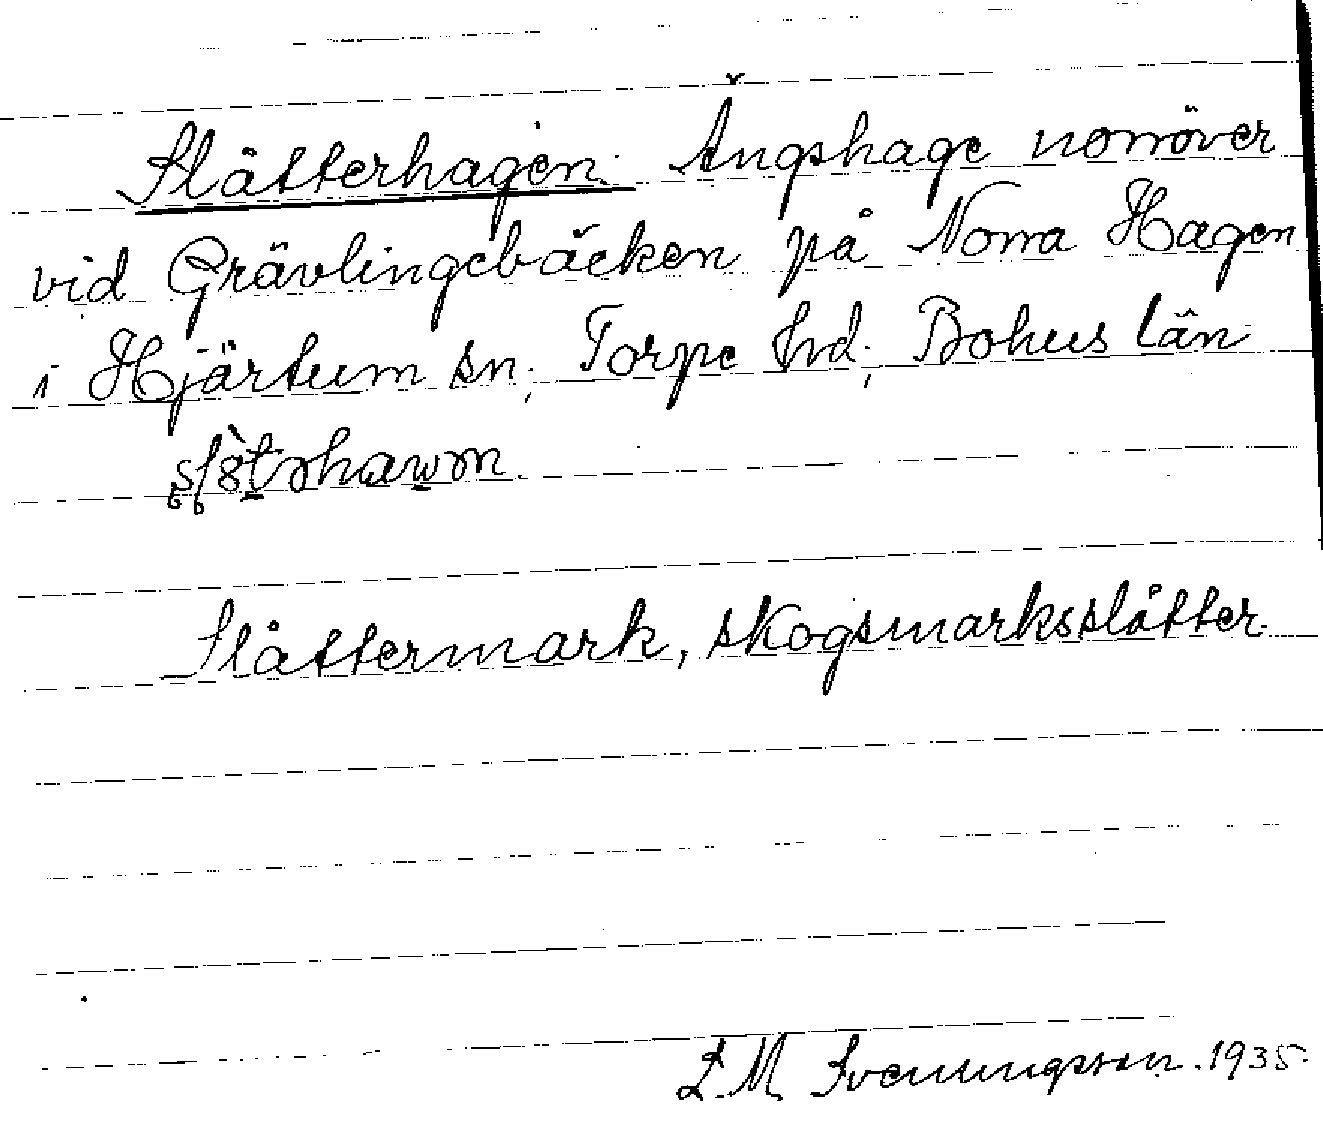 Slåtterhagen. Ängshage norröver
vid Grävlingebäcken på Norra Hagen
i Hjärtum sn, Torpe hrd, Bohus län
Slåttermark, skogsmarksslåtter.
L M Svenungsson. 1935.